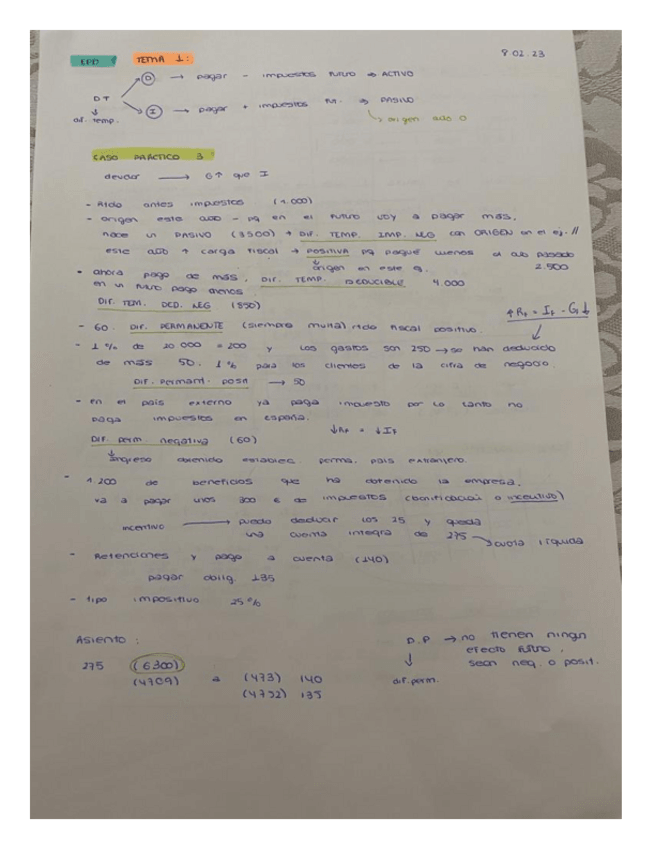 EPD TEMA 1: 8.02.23
D → pagar - impuestos futuro ⇒ ACTIVO
DT
I → pagar + impuestos fut. ⇒ PASIVO
dif. temp. ↳ origen año 0
CASO PRÁCTICO 3
devolver → G↑ que I
- Rtdo antes impuestos (1.000)
- origen este año - pq en el futuro voy a pagar más,
nace un PASIVO (3500) + DIF. TEMP. IMP. NEG con ORIGEN en el ej. //
este año + carga fiscal → POSITIVA pq pagué menos el año pasado
origen en este ej. 2.500
• ahora pago de más, DIF. TEMP. DEDUCIBLE 4.000
en un futuro pago menos
DIF. TEM. DED. NEG (550)
↑Rf = If - Gf↓
- 60. DIF. PERMANENTE (siempre multa) rtdo fiscal positivo.
- 1% de 20 000 = 200 y los gastos son 250 → se han deducido
de más 50. 1% para los clientes de la cifra de negocio.
DIF. permant. posit → 50
- en el país externo ya paga impuesto por lo tanto no
paga impuestos en España.
↓Rf = ↓If
DIF. perm. negativa (60)
ingreso obtenido establec. perma. país extranjero.
- 1.200 de beneficios que ha obtenido la empresa,
va a pagar unos 300 € de impuestos (bonificación o incentivo)
incentivo → puedo deducir los 25 y queda
una cuota íntegra de 275 → cuota líquida
- Retenciones y pago a cuenta (140)
pagar oblig. 135
- tipo impositivo 25%
Asiento:
275 (6300)
(4709) a (473) 140
(4752) 135
D.P → no tienen ningún
efecto futuro,
sean neg. o posit.
dif. perm.